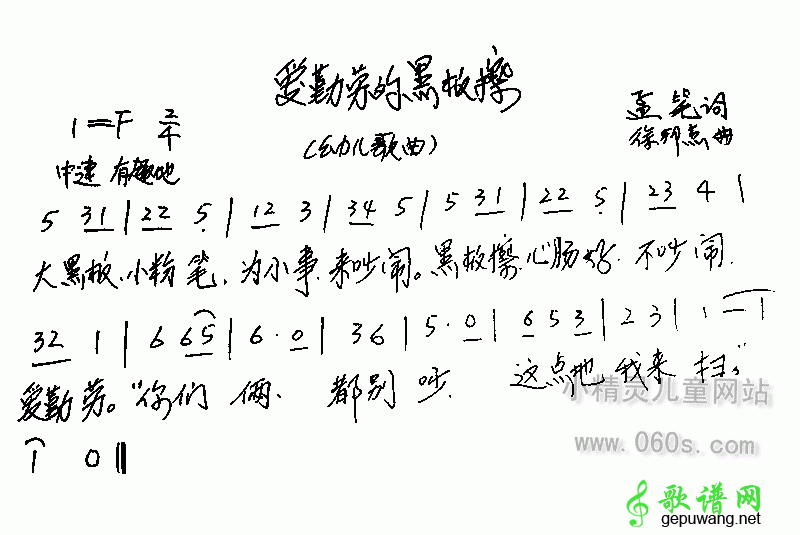 爱勤劳的黑板擦
(幼儿歌曲)
1=F 2/4
词
曲
中速 有趣地
5 31 | 22 5 | 12 3 | 34 5 | 5 31 | 22 5 | 23 4 |
大黑板、小粉笔、为小事、来吵闹。黑板擦、心肠好、不吵闹、
32 1 | 6 65 | 6·0 | 36 | 5·0 | 6 5 3 | 23 | 1 — |
爱勤劳。“你们 俩、 都别 吵、 这点地 我来 扫。”
1 0 ‖
小精灵儿童网站
www.060s.com
歌谱网
gepuwang.net